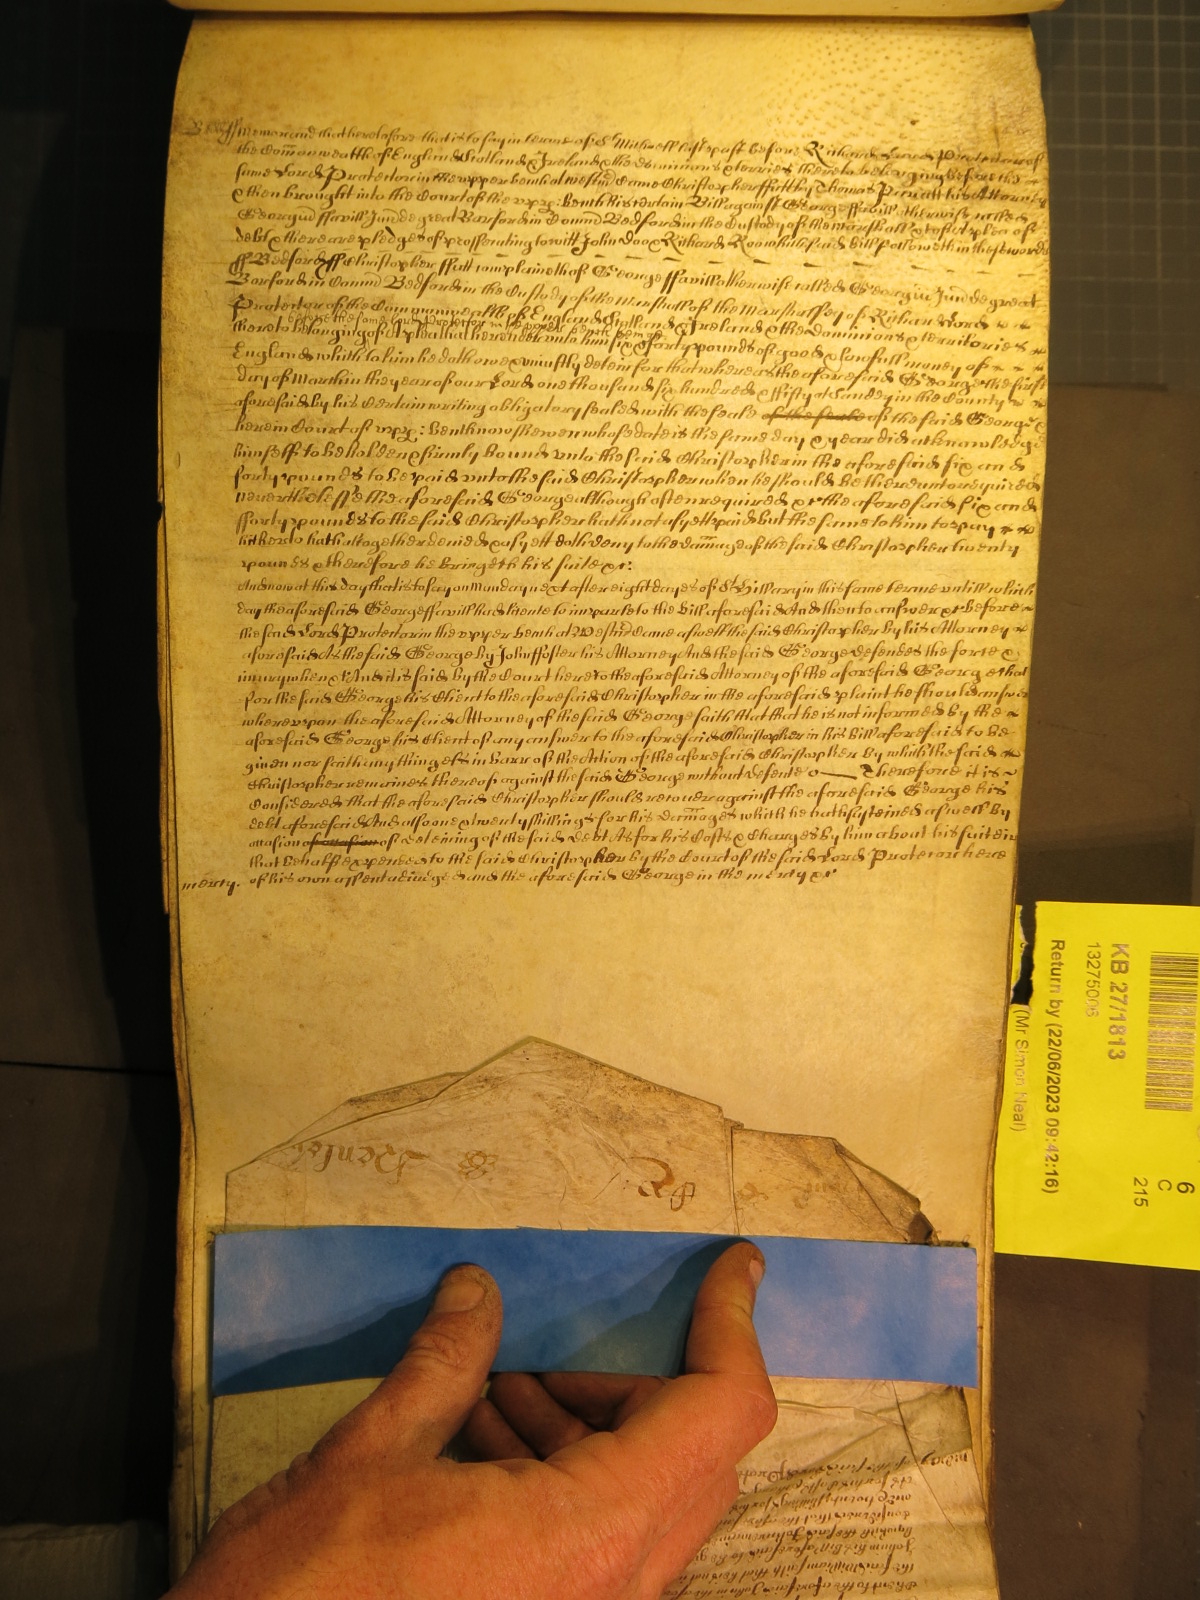 Bedff Memorand that heretofore that is to say in terme of St Michaell last past before Richard Lord Protector of
the Com̄onwealth of England Scotland & Ireland & the dominions & territories thereto belonging before the
same Lord Protector in the upper bench at westm̄ Came Christopher ffitt by Thomas his Attorney
& then brought into the Court of the upp: bench his certain Bill against George ffavill otherwise called
Georgiū ffavill Jun de great Barford in Com̄ Bedford in the Custody of the marshall &c of a plea of
debt & there are pledges of prosecuting to witt John Doo & Richard Roo which said bill followeth in these words
ff Bedford ff Christopher ffitt complaineth of George ffavill otherwise called Georgiū Jun de great
Barford in Com̄ Bedford in the Custody of the Marshall of the Marshalsey of Richard Lord
Protector of the Commonwealth of England Scotland & Ireland & the Dominions & territories
before the same Lord Protector in the upper bench being
thereto belonging of a plea that he render unto him six & forty pounds of good & lawfull money of
England which to him he doth owe & uniustly detein for that whereas the aforesaid George the first
day of March in the year of our Lord one thousand six hundred & ffifty at Sandey in the County
aforesaid by his Certain writing obligatory sealed with the seale of the seale of the said George
here in Court of upp: bench now shewen whose date is the same day & year did acknowledge
himself to be holden & firmly bound unto the said Christopher in the aforesaid six and
forty pounds to be paid unto the said Christopher when he should be thereunto required
neverthelesse the aforesaid George although often required &c the aforesaid six and
fforty pounds to the said Christopher hath not as yett paid but the same to him to pay
hitherto hath altogether denied & as yett doth deny to the dam̄age of the said Christopher twenty
pounds & therefore he bringeth his suite &c:
And now at this day that is to say on Munday next after eight dayes of St Hillary in this same terme untill which
day the aforesaid George ffavill had licence to imparle to the Bill aforesaid And then to answer &c before
the said Lord Protector in the upper bench at Westm̄ Came aswell the said Christopher by his Attorney
aforesaid As the said George by John ffoster his Attorney And the said George defendes the force &
iniury when &c And it is said by the Court here to the aforesaid Attorney of the aforesaid George that
for the said George his Client to the aforesaid Christopher in the aforesaid plaint he should answer
whereupon the aforesaid Attorney of the said George saith that that he is not informed by the
aforesaid George his Client of any answer to the aforesaid Christopher in his Bill aforesaid to be
given nor saith any thing els in barr of the Action of the aforesaid Christopher by which the said
Christopher remaines thereof against the said George without defence Therefore it is
Considered that the aforesaid Christopher should recover against the aforesaid George his
debt aforesaid And also one & twenty shillings for his dam̄ages which he hath susteined aswell by
occasion of occasion of deteining of the said debt As for his Costs & Charges by him about his suite in
that behalfe expended to the said Christopher by the Court of the said Lord Protector here
mercy. of his own assent adiudged and the aforesaid George in the mercy &c
KB 27/1813
13275006
Return by (22/06/2023 09:42:16)
(Mr Simon Neal)
6
C
215